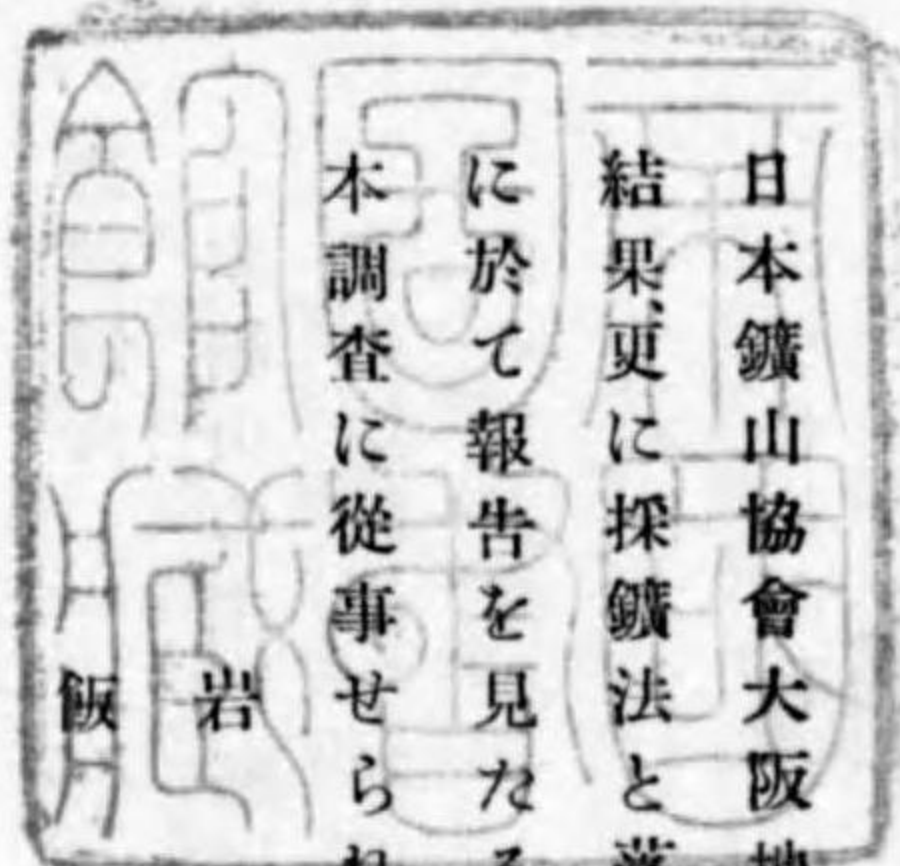 日本鑛山協會大阪地
結果、更に採鑛法と
に於て報告を見たる
本調査に從事せられ
岩
飯